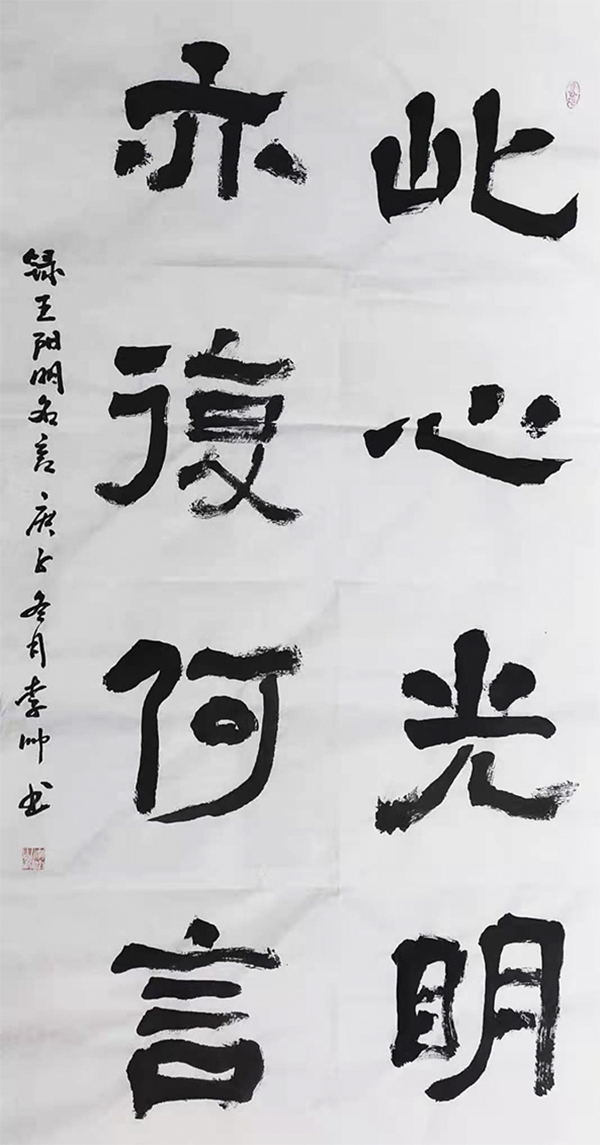 此心光明
亦復何言
録王阳明名言庚子冬月李帅书